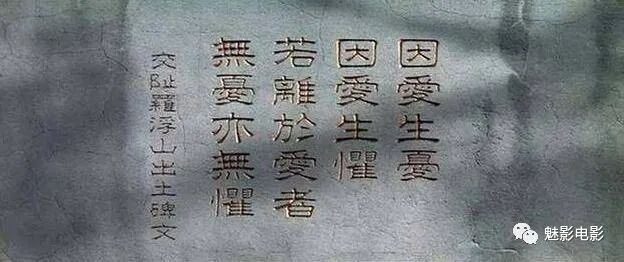 因愛生憂
因愛生懼
若離於愛者
無憂亦無懼
交趾羅浮山出土碑文
魅影电影